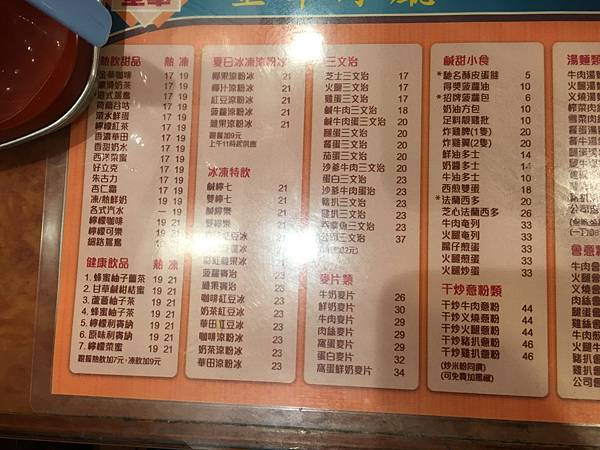 熱飲甜品 熱 凍
金華咖啡 17 19
濃滑奶茶 17 19
港式鴛鴦 17 19
荷蘭谷咕 17 19
滾水鮮蛋 17 19
檸檬紅茶 17 19
香濃華田 17 19
香甜奶水 17 19
西洋菜蜜 17 19
好立克 17 19
朱古力 17 19
杏仁霜 17 19
凍/熱鮮奶 19
各式汽水 一 19
檸檬咖啡 19 21
檸檬可樂 19 21
細路鴛鴦 10
健康飲品 熱 凍
1. 蜂蜜柚子薑茶 19 21
2. 甘草鹹柑桔蜜 19 21
3. 蘆薈柚子茶 19 21
4. 蜂蜜柚子茶 19 21
5. 檸檬利賓納 19 21
6. 原味利賓納 19 21
7. 檸檬菜蜜 19 21
跟餐熱飲加7元,凍飲加9元
夏日冰凍涼粉冰
椰果涼粉冰 21
椰汁涼粉冰 21
紅豆涼粉冰 21
菠蘿涼粉冰 21
蘋果涼粉冰 21
跟餐加9元
上午11時起供應
冰凍特飲
鹹檸七 21
檸七 21
鹹檸樂 21
檸樂 21
紅豆冰 21
菠蘿賓治 23
蘋果賓治 23
咖啡紅豆冰 23
奶茶紅豆冰 23
華田紅豆冰 23
咖啡涼粉冰 23
奶茶涼粉冰 23
華田涼粉冰 23
三文治
芝士三文治 17
火腿三文治 17
雞蛋三文治 17
鹹牛肉三文治 18
腿蛋三文治 20
餐蛋三文治 20
茄蛋三文治 20
沙爹牛肉三文治 20
蛋白三文治 20
沙爹牛肉蛋三文治 23
豬扒三文治 23
雞扒三文治 23
吞拿魚三文治 23
公司三文治 37
麥片類
牛奶麥片 26
鮮奶麥片 30
牛肉麥片 29
肉絲麥片 29
窩蛋麥片 29
蛋白麥片 32
窩蛋鮮奶麥片 34
鹹甜小食
*馳名酥皮蛋撻 5
得獎菠蘿油 10
*招牌菠蘿包 6
奶油方包 10
足料靚雞批 10
炸雞髀(1隻) 20
炸雞翼(2隻) 20
鮮油多士 14
奶醬多士 14
牛油多士 14
西煎雙蛋 20
*法蘭西多 20
芝心法蘭西多 26
牛肉奄列 33
火腿奄列 33
腸仔煎蛋 33
火腿煎蛋 33
火腿炒蛋 33
干炒意粉類
干炒牛肉意粉 44
干炒叉燒意粉 44
干炒火腿意粉 44
干炒豬扒意粉 46
干炒雞扒意粉 46
(炒米粉同價)
(可免費加黑椒)
湯麵類